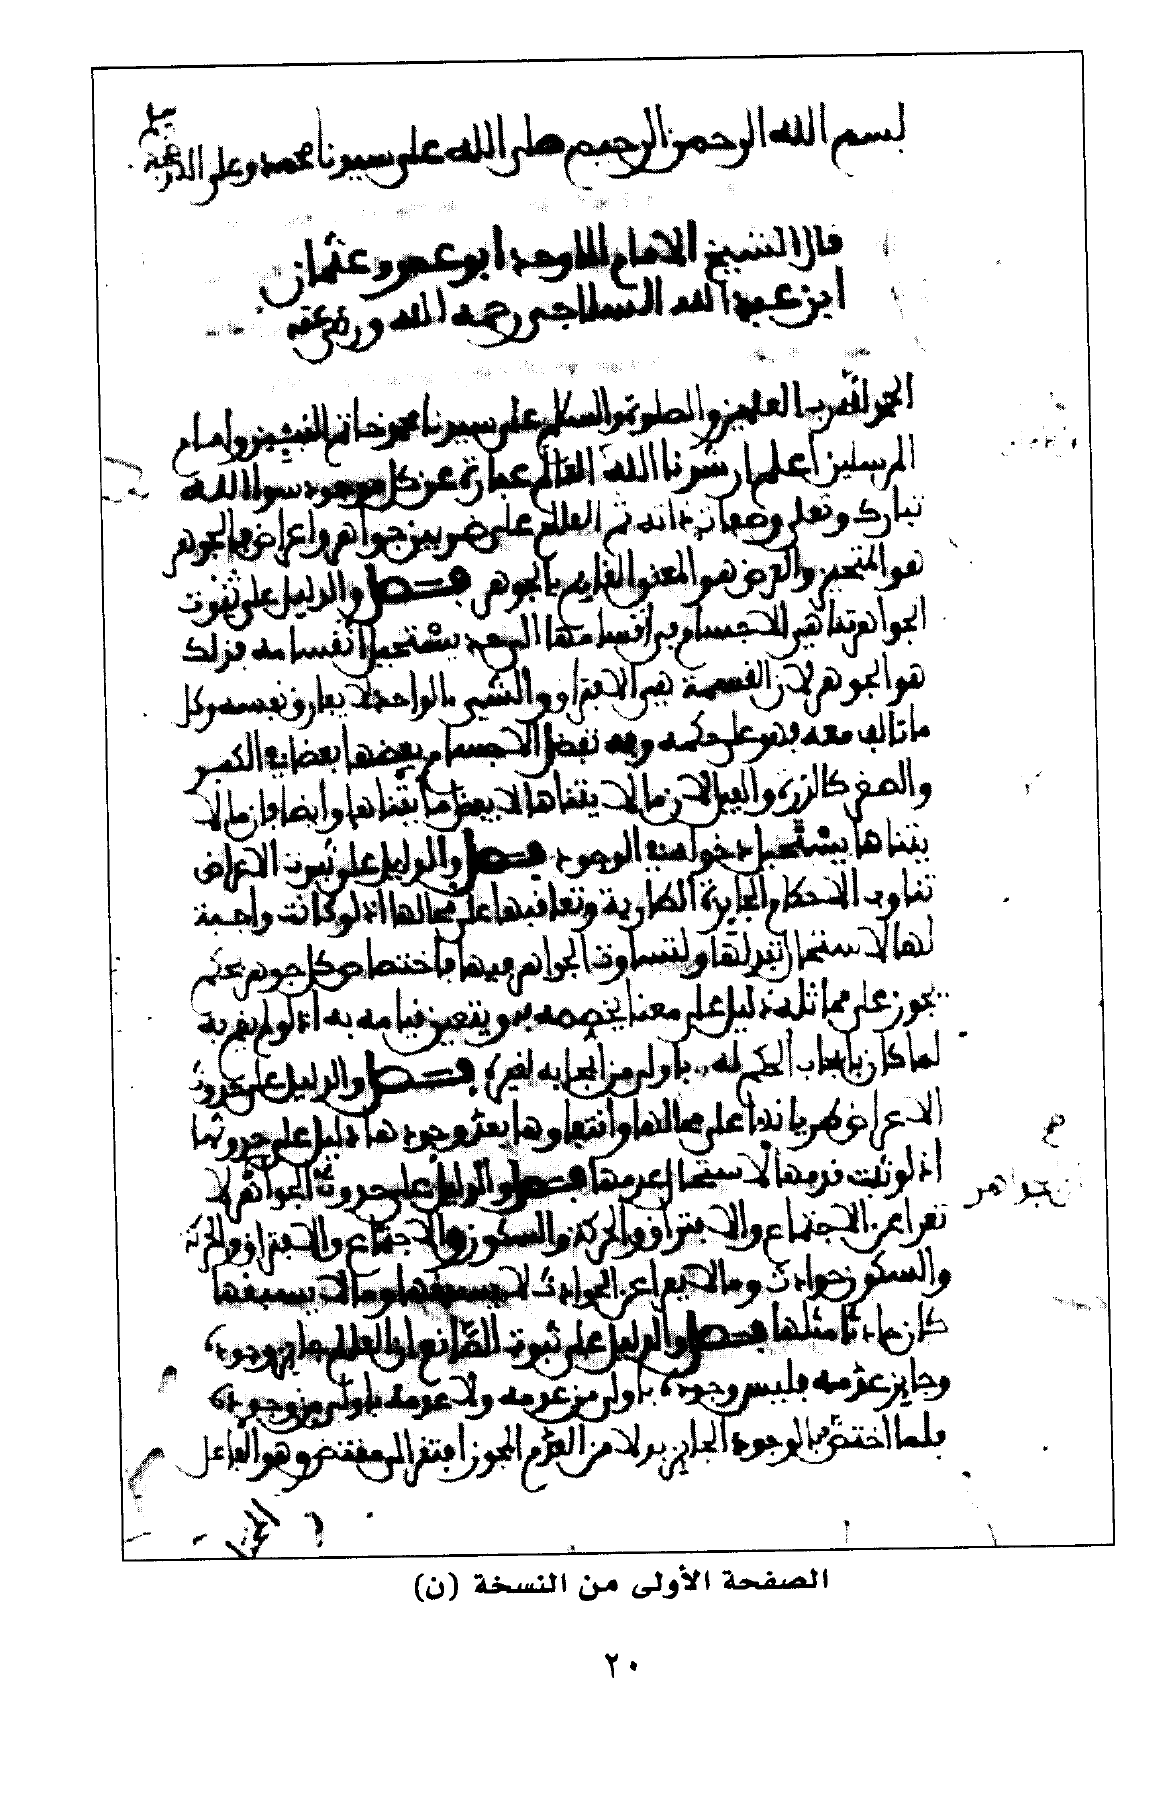 بسم الله الرحمن الرحيم صلى الله على سيدنا محمد وعلى اله وصحبه
قال الشيخ الامام الاوحد ابو عمرو عثمان
ابن عبد الله السلالجي رحمه الله ورضي عنه
الحمد لله رب العلمين والصلوة والسلام على سيدنا محمد خاتم النبيين وامام
المرسلين اعلم ارشدنا الله ان العالم عبارة عن كل موجود سوا الله
تبارك وتعلى وصفات ذاته ثم العالم على ضربين جواهر واعراض فالجوهر
هو المتحيز والعرض هو المعنى القايم بالجوهر فصل والدليل على ثبوت
الجواهر تناهي الاجسام في انقسامها الى حد يستحيل انقسامه فذلك
هو الجوهر لان القسمة هي الافتراق والشيء الواحد لا يفارق نفسه وكل
ما تالف معه فهو على حكمه وفيه تفضل الاجسام بعضها بعضا في الكبر
والصغر كالذرة والفيل لان ما لا يتناها لا يفضل ما يتناها وايضا فان ما لا
يتناها يستحيل دخوله في الوجود فصل والدليل على ثبوت الاعراض
تناوب الاحكام الجايزة الطارية وتعاقبها على محالها اذ لو كانت واجبة
لها لاستحال تبدلها ولتساوت الجواهر فيها فاختصاص كل جوهر بحكم
يجوز على مماثله دليل على معنا يخصصه به ويتعين قيامه به اذ لو لم يقم به
لما كان بايجاب الحكم له باولى من ايجابه لغيره فصل والدليل على حدوث
الاعراض طريانها على محالها وانتفاوها بعد وجودها دليل على حدوثها
اذ لو ثبت قدمها لاستحال عدمها فصل والدليل على حدوث الجواهر انها لا
تعرا عن الاجتماع والافتراق والحركة والسكون والاجتماع والافتراق والحركة
والسكون حوادث وما لا يعرا عن الحوادث لا يسبقها وما لا يسبقها
كان حادثا مثلها فصل والدليل على ثبوت الصانع ان العالم جايز وجوده
وجايز عدمه فليس وجوده باولى من عدمه ولا عدمه باولى من وجوده
فلما اختص بالوجود الجايز بدلا من العدم المجوز افتقر الى مقتض وهو الفاعل
جواهر
الصفحة الأولى من النسخة (ن)
٢٠